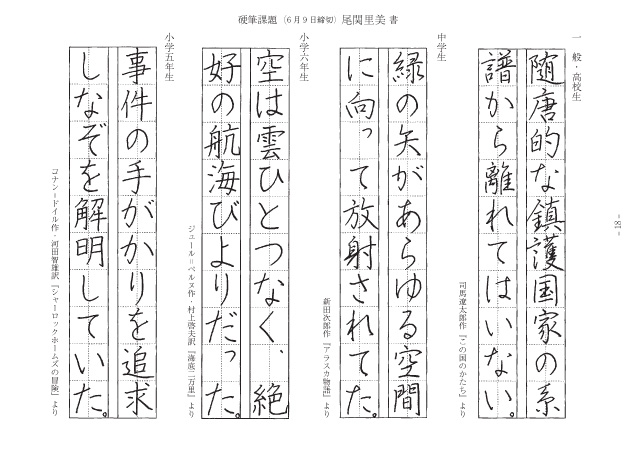 硬筆課題（6月9日締切）尾関里美 書
一般・高校生
随唐的な鎮護国家の系
譜から離れてはいない。
司馬遼太郎作『この国のかたち』より
中学生
緑の矢があらゆる空間
に向って放射されてた。
新田次郎作『アラスカ物語』より
小学六年生
空は雲ひとつなく、絶
好の航海びよりだった。
ジュール＝ベルヌ作・村上啓夫訳『海底二万里』より
小学五年生
事件の手がかりを追求
しなぞを解明していた。
コナン＝ドイル作・河田智雄訳『シャーロックホームズの冒険』より